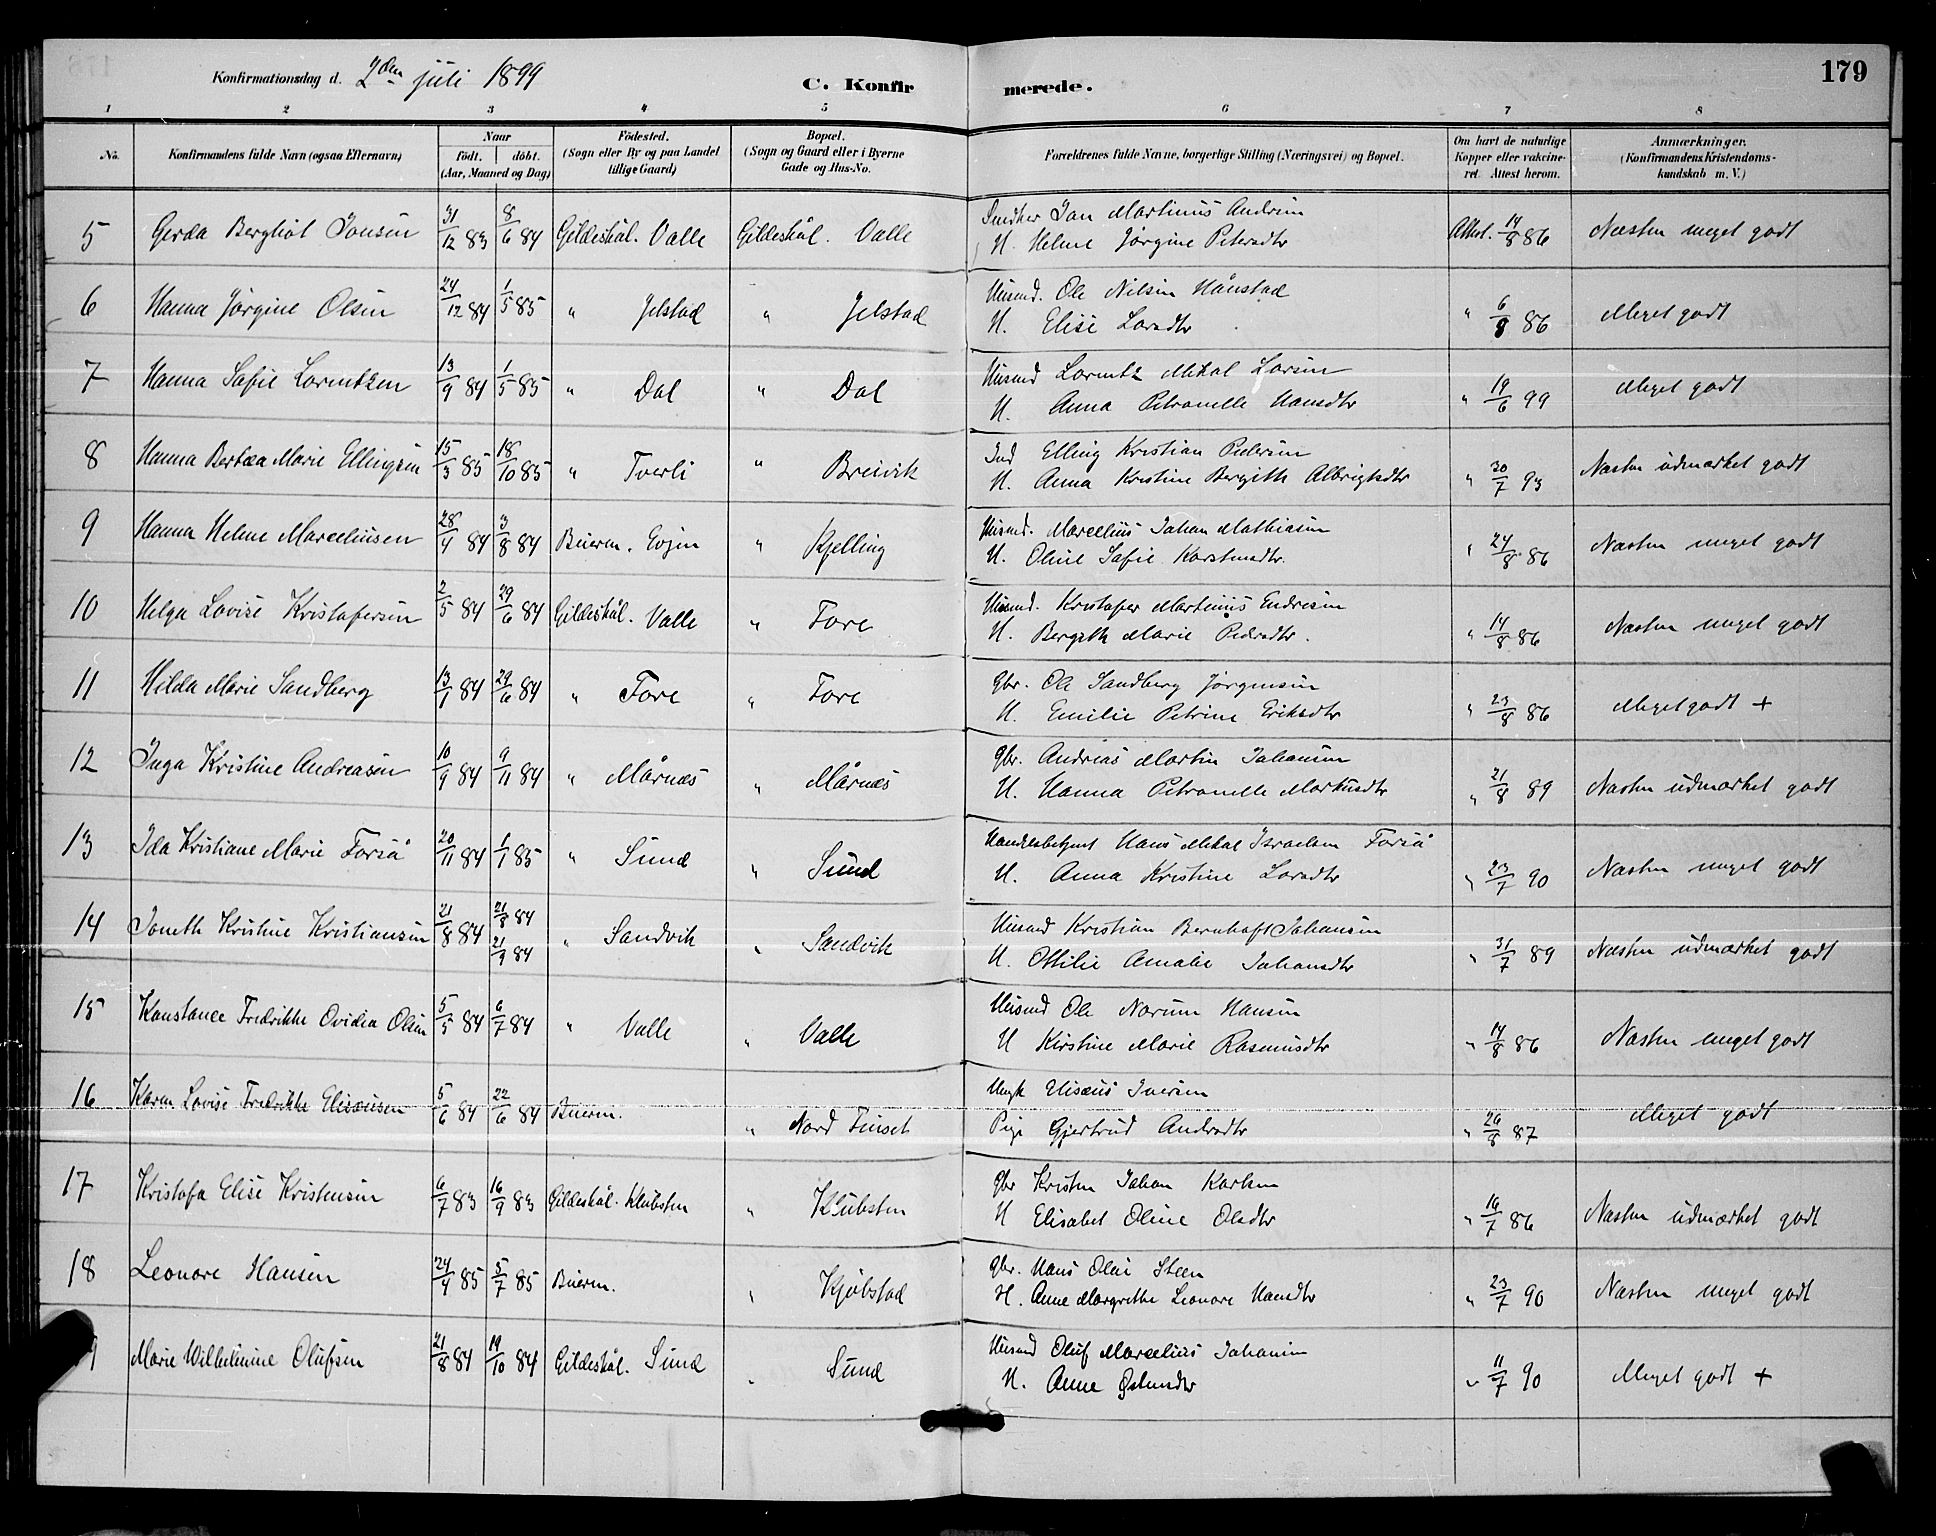 179
Konfirmationsdag d. 2den juli 1899
C. Konfirmerede.
1 2 3 4 5 6 7 8
No. Konfirmandens fulde Navn (ogsaa Efternavn) Naar födt. döbt. (Aar, Maaned og Dag) Födested. (Sogn eller By og paa Landet tillige Gaard) Bopæl. (Sogn og Gaard eller i Byerne Gade og Hus-No. Forældrenes fulde Navne, borgerlige Stilling (Næringsvei) og Bopæl. Om havt de naturlige Kopper eller vakcineret. Attest herom. Anmærkninger. (Konfirmandens Kristendomskundskab m. V.)
5 Gerda Bergliot Jonsen 31/12 83 8/6 84 Gildeskål. Valle Gildeskål. Valle Jan Martinus Andrsen Attest. 14/8 86 Næsten meget godt
H. Helene Jørgine Petersdtr
6 Hanna Jørgine Olsen 24/12 84 1/5 85 " Jelstad " Jelstad Husmd. Ole Nilsen Hånstad " 6/8 86 Meget godt
H. Elise Larsdtr
7 Hanna Sofie Lorentzen 13/9 84 1/5 85 " Dal " Dal Husmd Lorentz Mikal Larsen " 19/6 99 Meget godt
H. Anna Petronelle Hansdtr
8 Hanna Bertæa Marie Ellingsen 15/3 85 18/10 85 " Tverli " Breivik Ind Elling Kristian Pedersen " 30/7 93 Næsten udmærket godt
H. Anna Kristine Bergitte Albrigtsdtr
9 Hanna Helene Marceliusen 28/4 84 3/8 84 Beieren. Evjen " Kjelling Husmd. Marcelius Johan Mathiasen " 24/8 86 Næsten meget godt
H. Oline Sofie Karstensdtr.
10 Helga Lovise Kristofersen 2/5 84 29/6 84 Gildeskål. Valle " Fore Husmd. Kristofer Martinus Endresen " 14/8 86 Næsten meget godt
H. Bergitte Marie Pedersdtr.
11 Hilda Marie Sandberg 13/1 84 29/6 84 " Fore " Fore Gbr. Ole Sandberg Jørgensen " 23/8 86 Meget godt +
H. Emilie Petrine Eriksdtr
12 Inga Kristine Andreasen 10/9 84 9/11 84 " Mårnæs " Mårnæs Gbr. Andreas Martin Johansen " 21/8 89 Næsten udmærket godt
H. Hanna Petronelle Markusdtr
13 Ida Kristiane Marie Forså 20/11 84 1/1 85 " Sund " Sund Handelsbetjent Hans Mikal Israelsen Forså " 23/7 90 Næsten meget godt
H. Anna Kristine Larsdtr
14 Joneth Kristine Kristiansen 21/8 84 21/8 84 21/9 84 " Sandvik " Sandvik Husmd Kristian Bernhoft Johansen " 31/7 89 Næsten udmærket godt
H. Ottilie Amalie Johansdtr
15 Konstance Fredrikke Ovidia Olsen 5/5 84 6/7 84 " Valle " Valle Husmd Ole Norum Hansen " 14/8 86 Næsten meget godt
H Kirstine Marie Rasmusdtr
16 Karen Lovise Fredrikke Elisæusen 5/6 84 22/6 84 Beieren. " Nord Finset Ungk Elisæus Iversen " 26/8 87 Meget godt
Pige Gjertrud Andersdtr
17 Kristofa Elise Kristensen 6/7 83 16/9 83 Gildeskål. Klubsten " Klubsten Gbr Kristen Johan Karlsen " 16/7 86 Næsten udmærket godt
H Elisabet Oline Olsdtr
18 Leonore Hansen 24/4 85 5/7 85 Beieren. " Kjøbstad Gbr. Hans Olai Steen " 23/7 90 Næsten meget godt
H. Anne Margrethe Leonore Hansdtr
9 Marie Wilhelmine Olufsen 21/8 84 19/10 84 Gildeskål. Sund " Sund Husmd Oluf Marcelius Johansen " 11/7 90 Meget godt +
H. Anne Østensdtr